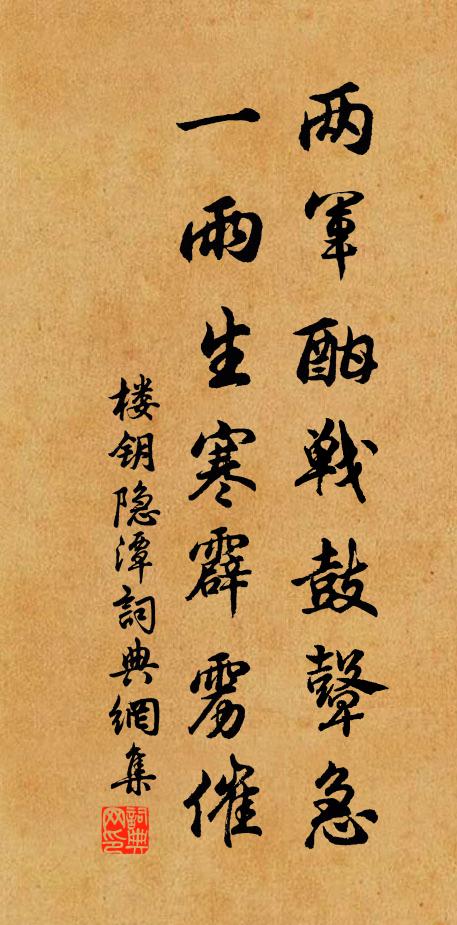 两軍酣戦鼓聲急
一雨生寒霹雳催
楼钥隐潭詞典網集
詞典网印